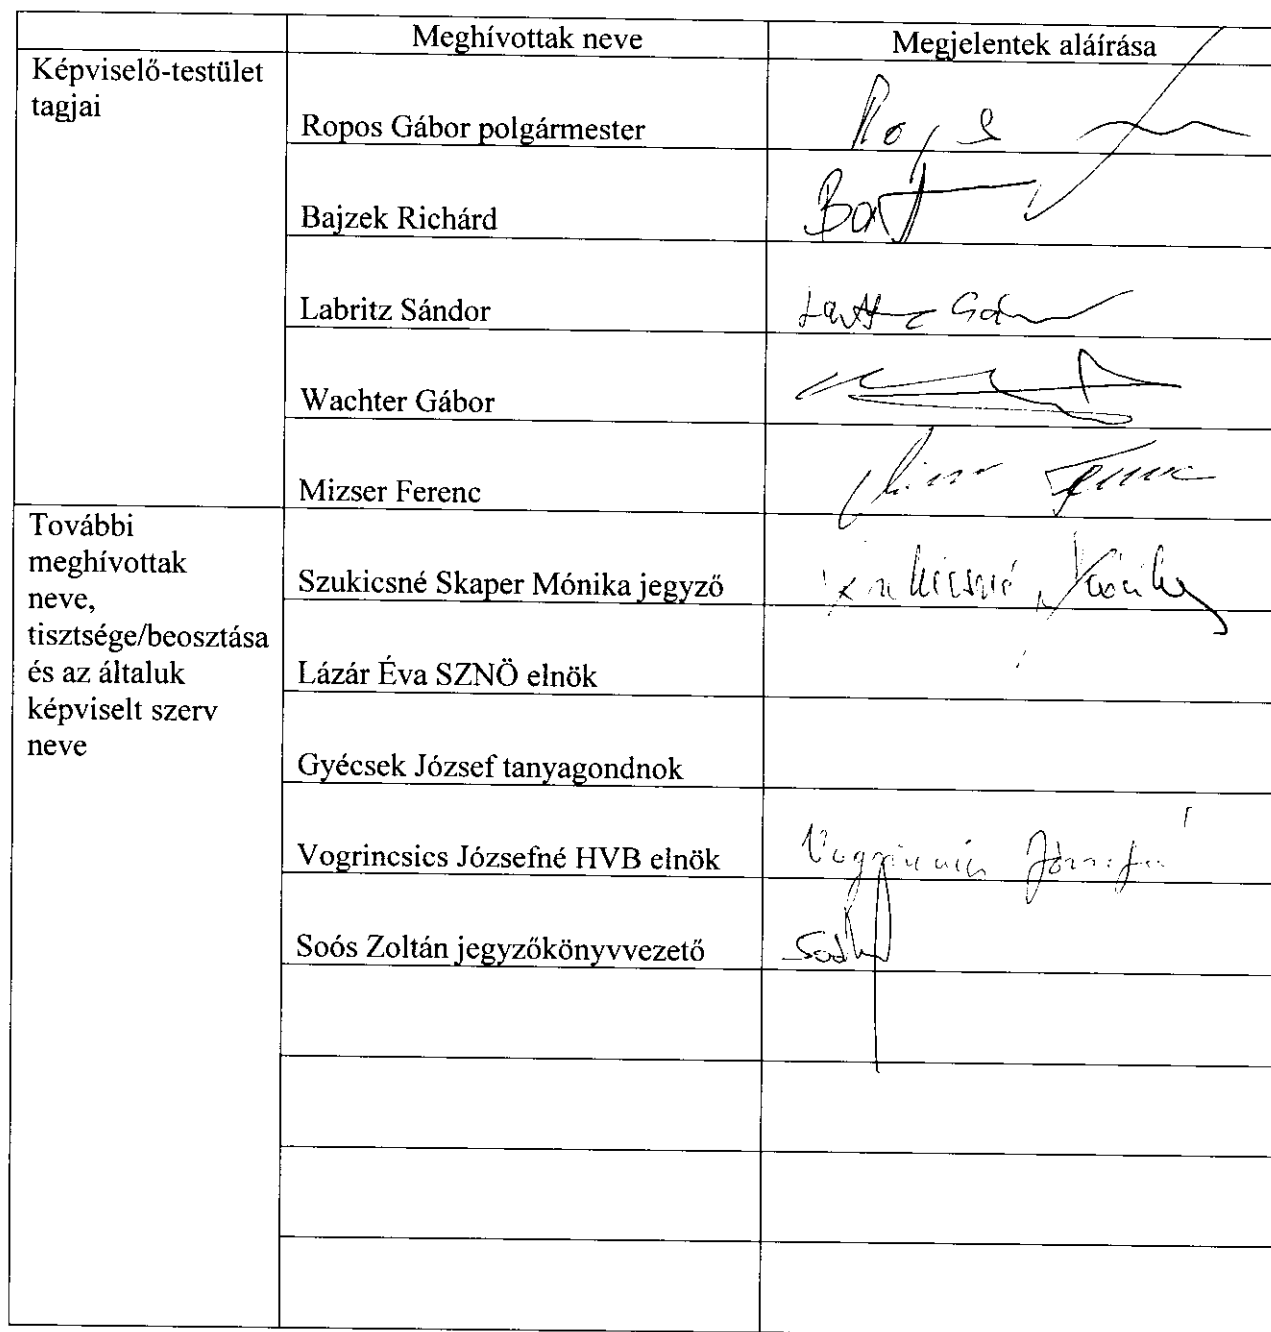 Meghívottak neve
Megjelentek aláírása
Képviselő-testület
tagjai
Ropos Gábor polgármester
Bajzek Richárd
Labritz Sándor
Wachter Gábor
Mizser Ferenc
Ferenc
További
meghívottak
neve,
tisztsége/beosztása
és az általuk
képviselt szerv
neve
Szukicsné Skaper Mónika jegyző
Lázár Éva SZNÖ elnök
Gyécsek József tanyagondnok
Vogrincsics Józsefné HVB elnök
Soós Zoltán jegyzőkönyvvezető